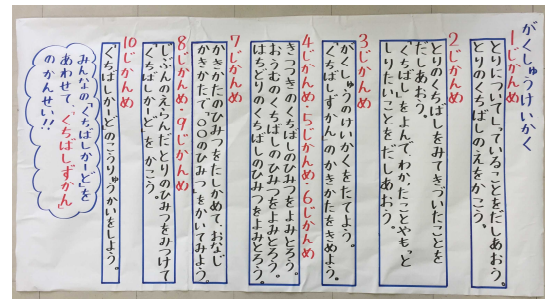 がくしゅうけいかく
1じかんめ
とりについてしっていることをだしあおう。
とりのくちばしのえをかこう。
2じかんめ
とりのくちばしをみてきづいたことを
だしあおう。
「くちばし」をよんでわかったことやもっと
しりたいことをだしあおう。
3じかんめ
がくしゅうのけいかくをたてよう。
「くちばしずかん」のかきかたをきめよう。
4じかんめ・5じかんめ・6じかんめ
きつつきのくちばしのひみつをよみとろう。
おうむのくちばしのひみつをよみとろう。
はちどりのくちばしのひみつをよみとろう。
7じかんめ
かきかたのひみつをたしかめて、おなじ
かきかたで「〇〇のひみつ」をかいてみよう。
8じかんめ・9じかんめ
じぶんのえらんだとりのひみつをみつけて
「くちばしかーど」をかこう。
10じかんめ
「くちばしかーど」のこうりゅうかいをしよう。
みんなの「くちばしかーど」を
あわせて、「くちばしずかん」
のかんせい!!